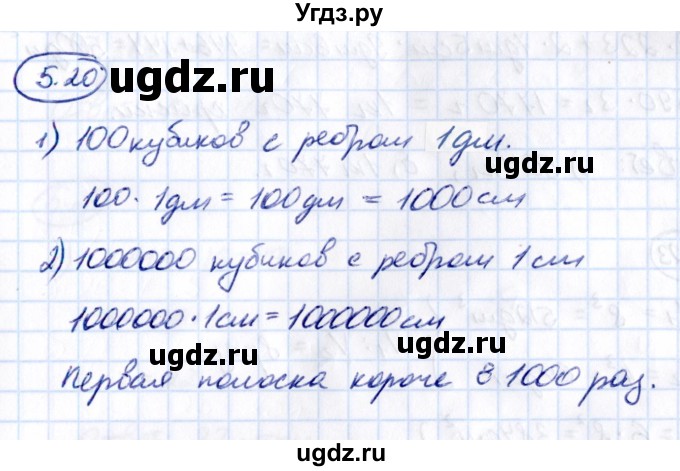 Угдз.ру
5.20
ugdz.ru
1) 100 кубиков с ребром 1 дм.
ugdz.ru
100 · 1дм = 100дм = 1000см
2) 1000000 кубиков с ребром 1 см
1000000 · 1см = 1000000см
ugdz.ru
ugdz.ru
Первая полоска короче в 1000 раз.
ugdz.ru
ugdz.ru